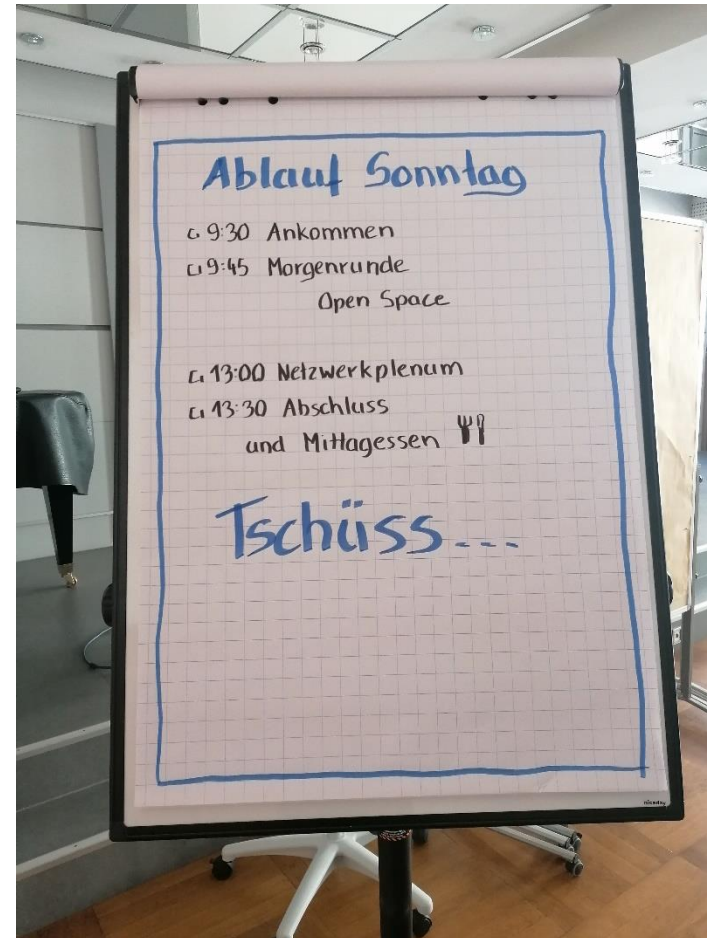 Ablauf Sonntag
9:30 Ankommen
9:45 Morgenrunde
Open Space
13:00 Netzwerkplenum
13:30 Abschluss
und Mittagessen
Tschüss...